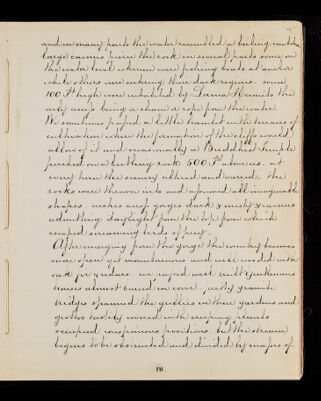 and in many parts the water resembled a boiling cauldron
large caverns pierce the rock in several parts some on
the water level wherein were fishing boats at anchor
while others were entering these dark regions. some
100 Ft high were inhabited by Hermits the
only access being a chain or rope from the water.
We sometimes passed a little hamlet with terraces of
cultivation where the formation of the cliffs would
allow of it and occasionally a Buddhist Temple
perched on a beetling rock 500 Ft above us. at
every turn the scenery altered and varied. the
rocks were thrown into and assumed all imaginable
shapes. arches deep gorges dark & misty & caverns
admitting daylight from the top from which
escaped screaming birds of prey.
After emerging from the gorge the country becomes
more open yet mountainous and well wooded with
oak fir & We passed well built Gentlemens
houses almost buried in cover, rustic granite
bridges spanned the gullies in their gardens and
grottos tastily covered with creeping plants
occupied conspicuous positions. but the stream
begins to be obstructed and divided by masses of